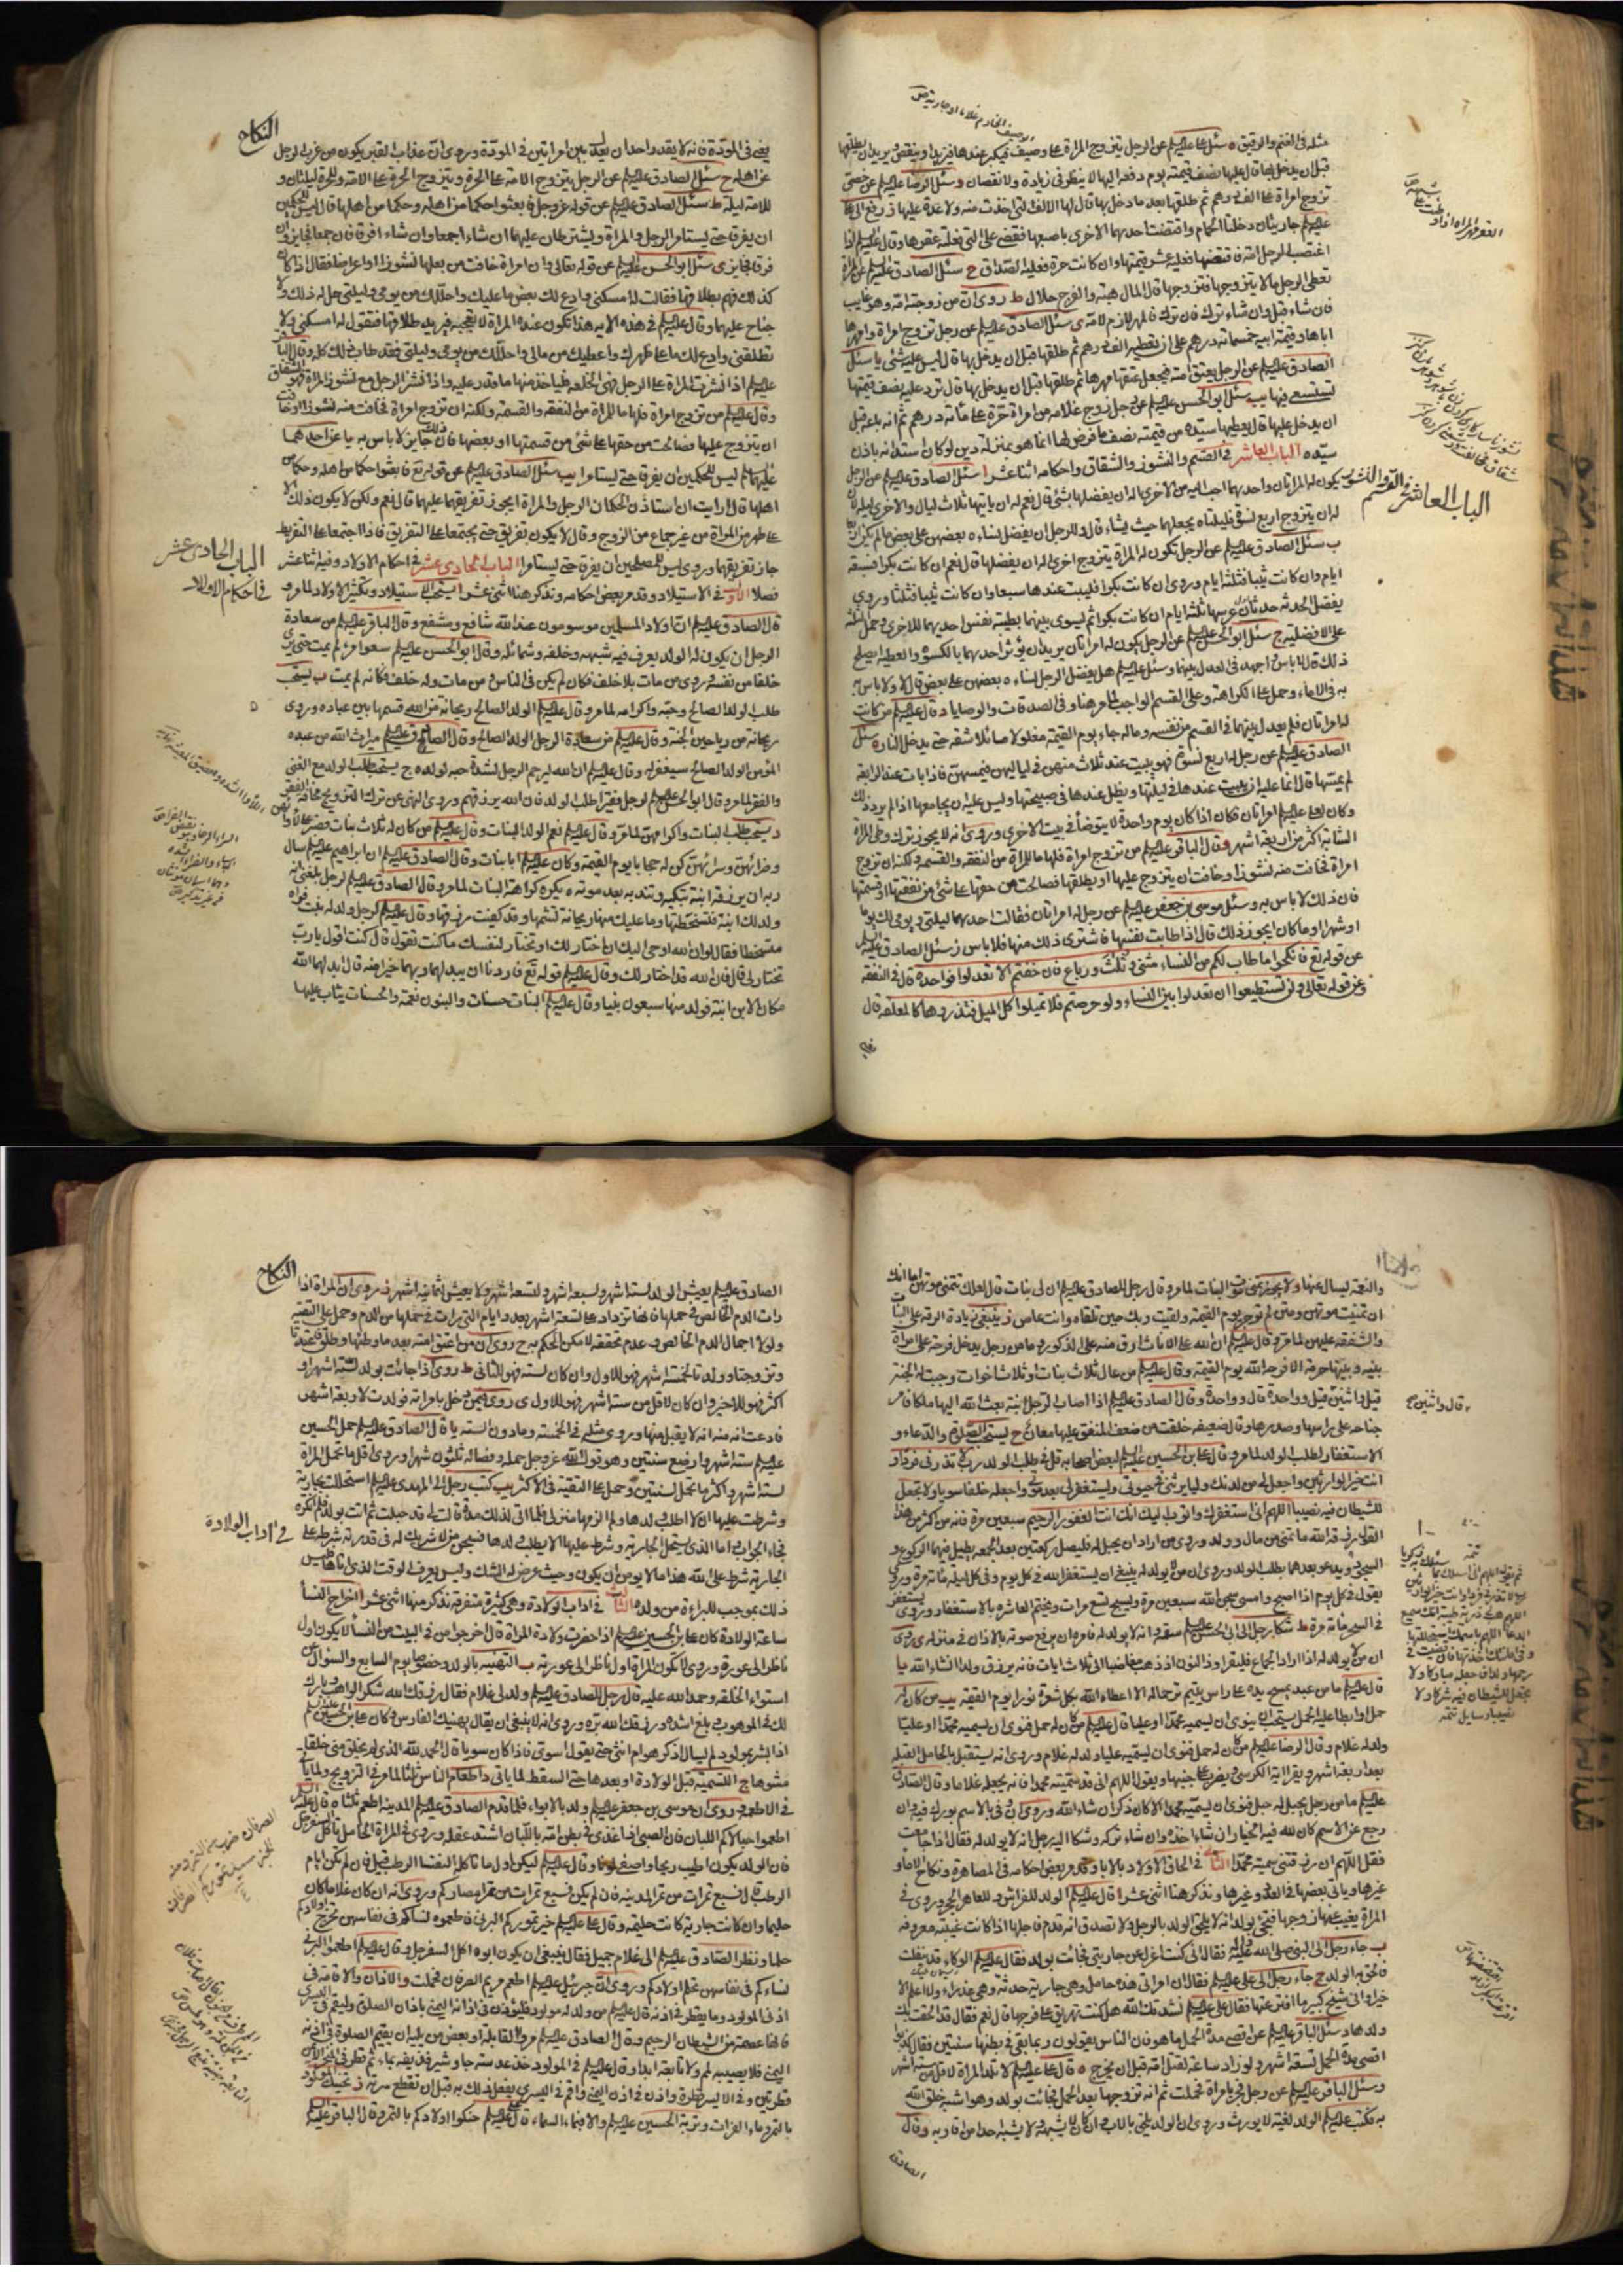 مثله في الغنم والرقيق ه سئل ع عليلم عن الرجل يتزوج المراة على وصيف فيكبر عندها فيزيد او ينقص ويريد ان يطلقها
قبل ان يدخل بها قال عليها نصف قيمته يوم دفعه اليها لا ينظر في زيادة ولا نقصان و سئل الرضا عليلم عن خصي
تزوج امراة على الف درهم ثم طلقها بعد ما دخل بها قال لها الالف التي اخذت منه ولا عدة عليها ز رفع الى علي
عليلم جاريتان دخلتا الحمام واقتضت احديهما الاخرى باصبعها فقضى على التي فعلته عقرها وقال عليلم اذا
اغتصب الرجل امة فاقتضها فعليه عشر قيمتها وان كانت حرة فعليه الصداق ح سئل الصادق عليلم عن المراة
تعطى الرجل مالا يتزوجها فتزوجها قال المال هبة والفرج حلال ط روى ان من زوجته امه وهو غايب
فان شاء قبل وان شاء ترك فان ترك فالمهر لازم لامه ى سئل الصادق عليلم عن رجل تزوج امراة وامهرها
اباها وقيمة ابيه خمسمائة درهم على ان تعطيه الف درهم ثم طلقها قبل ان يدخل بها قال ليس عليه شئ يا سئل
الصادق عليلم عن الرجل يعتق امته فيجعل عتقها مهرها ثم طلقها قبل ان يدخل بها قال ترد عليه نصف قيمتها
تستسعى فيها يب سئل ابو الحسن عليلم عن رجل زوج غلامه من امراة حرة على مائة درهم ثم انه باعه قبل
ان يدخل عليها قال يعطيها سيده من قيمته نصف ما فرض لها انما هو بمنزلة دين لو كان استدانه باذن
سيده الباب العاشر في القسم والنشوز والشقاق واحكامه اثنا عشر ا سئل الصادق عليلم عن الرجل
يكون له المراتان واحديهما احب اليه من الاخرى اله ان يفضلها بشئ قال نعم له ان ياتيها ثلاث ليال والاخرى ليلة لان
له ان يتزوج اربع نسوة فليلتاه يجعلهما حيث يشاء قال وللرجل ان يفضل نساءه بعضهن على بعض ما لم يكن اربعا
ب سئل الصادق عليلم عن الرجل تكون له المراة يتزوج اخرى اله ان يفضلها قال نعم ان كانت بكرا فسبعة
ايام وان كانت ثيبا فثلثة ايام وروى ان كانت بكرا فليبت عندها سبعا وان كانت ثيبا فثلثا وروى
يفضل الحدثة حدثان عرسها ثلثة ايام ان كانت بكرا ثم ليسوى بينهما بطيبة نفس احديهما للاخرى وحمل الثلثة
على الافضلية ج سئل ابو الحسن عليلم عن الرجل يكون له امراتان يريد ان يؤثر احديهما بالكسوة والعطية ايصلح
ذلك قال لا باس واجهد في العدل بينهما وسئل عليلم هل يفضل الرجل نساءه بعضهن على بعض قال لا ولا باس به
به في الاماء وحمل على الكراهة وعلى القسم الواجب لما مر هنا وفي الصدقات والوصايا د قال عليلم من كانت
له امراتان فلم يعدل بينهما في القسم من نفسه وماله جاء يوم القيمة مغلولا مائلا شقه حتى يدخل النار ه سئل
الصادق عليلم عن رجل له اربع نسوة فهو يبيت عند ثلاث منهن في لياليهن فيمسهن فاذا بات عند الرابعة
لم يمسها قال انما عليه ان يبيت عندها في ليلتها ويظل عندها في صبيحتها وليس عليه ان يجامعها اذا لم يرد ذلك
وكان لعلي عليلم امراتان فكان اذا كان يوم واحدة لا يتوضأ في بيت الاخرى وروى انه لا يجوز ترك وطى المراة
الشابة اكثر من اربعة اشهر و قال الباقر عليلم من تزوج امراة فلها ما للمراة من النفقة والقسم ولكنه ان تزوج
امراة فخافت منه نشوزا وخافت ان يتزوج عليها او يطلقها فصالحت من حقها على شئ من نفقتها او قسمتها
فان ذلك لا باس به وسئل موسى بن جعفر عليلم عن رجل له امراتان فقالت احديهما ليلتي ويومي لك يوما
او شهرا او ما كان ايجوز ذلك قال اذا طابت نفسها فاشترى ذلك منها فلا باس ز سئل الصادق عليلم
عن قوله تع فانكحوا ما طاب لكم من النساء مثنى وثلث ورباع فان خفتم الا تعدلوا فواحدة قال في النفقة
وعن قوله تعالى ولن تستطيعوا ان تعدلوا بين النساء ولو حرصتم فلا تميلوا كل الميل فتذروها كالمعلقة قال
الباب العاشر في القسم والنشوز
النكاح
يعني في المودة فانه لا يقدر احد ان يعدل بين امراتين في المودة وروى ان عذاب القبر يكون من عزب الرجل
عن اهله ح سئل الصادق عليلم عن الرجل يتزوج الامة على الحرة ويتزوج الحرة على الامة وللحرة ليلتان و
للامة ليلة ط سئل الصادق عليلم عن قوله عز وجل فابعثوا حكما من اهله وحكما من اهلها قال ليس للحكمين
ان يفرقا حتى يستامرا الرجل والمراة ويشترطان عليهما ان شاءا جمعا وان شاءا فرقا فان جمعا فجايز وان
فرقا فجايز ى سئل ابو الحسن عليلم عن قوله تعالى وان امراة خافت من بعلها نشوزا او اعراضا فقال اذا كان
كذلك فهم بطلاقها فقالت له امسكني وادع لك بعض ما عليك واحللك من يومي وليلتي حل له ذلك ولا
جناح عليهما وقال عليلم في هذه الاية هذا تكون عنده المراة لا تعجبه فيريد طلاقها فتقول له امسكني ولا
تطلقني وادع لك ما على ظهرك واعطيك من مالي واحللك من يومي وليلتي فقد طاب ذلك كله وقال الباقر
عليلم اذا نشزت المراة على الرجل فهي الخلعة فليأخذ منها ما قدر عليه واذا نشز الرجل مع نشوز المراة فهو الشقاق
وقال عليلم من تزوج امراة فلها ما للمراة من النفقة والقسمة ولكنه ان تزوج امراة فخافت منه نشوزا او خافت
ان يتزوج عليها فصالحت من حقها على شئ من قسمتها او بعضها فان ذلك جايز لا باس به يا عن احدهما
عليهما لم ليس للحكمين ان يفرقا حتى يستامرا يب سئل الصادق عليلم عن قوله تع فابعثوا حكما من اهله وحكما من
اهلها قال ارايت ان استاذن الحكمان الرجل والمراة ايجوز تفريقهما عليهما قال نعم ولكن لا يكون ذلك الا
على طهر من المراة من غير جماع من الزوج وقال لا يكون تفريق حتى يجتمعا على التفريق فاذا اجتمعا على التفريق
جاز تفريقهما وروى ليس للمصلحين ان يفرقا حتى يستامرا الباب الحادى عشر في احكام الاولاد وفيه اثنا عشر
فصلا الاول في الاستيلاد وقد مر بعض احكامه ونذكر هنا اثنى عشر ا يستحب الاستيلاد وتكثير الاولاد لما مر و
قال الصادق عليلم ان اولاد المسلمين موسومون عند الله شافع ومشفع وقال الباقر عليلم من سعادة
الرجل ان يكون له الولد يعرف فيه شبهه وخلقه وشمائله وقال ابو الحسن عليلم سعد امرؤ لم يمت حتى يرى
خلفا من نفسه وروى من مات بلا خلف فكان لم يكن في الناس ومن مات وله خلف فكانه لم يمت ب يستحب
طلب الولد الصالح وحبه واكرامه لما مر وقال عليلم الولد الصالح ريحانة من الله قسمها بين عباده وروى
ريحانة من رياحين الجنة وقال عليلم من سعادة الرجل الولد الصالح وقال الصادق عليلم ميراث الله من عبده
المؤمن الولد الصالح سيغفر له وقال عليلم ان الله ليرحم الرجل لشدة حبه لولده ج يستحب طلب الولد مع الغنى
والفقر لما مر وقال ابو الحسن عليلم لرجل فقير اطلب الولد فان الله يرزقهم وروى النهى عن ترك التزويج مخافة الفقر
د يستحب طلب البنات واكرامهن لما مر وقال عليلم نعم الولد البنات وقال عليلم من كان له ثلاث بنات فصبر على لأوائهن
وضرائهن وسرائهن كن له حجابا يوم القيمة وكان عليلم ابا بنات وقال الصادق عليلم ان ابراهيم عليلم سال
ربه ان يرزقه ابنة تبكيه وتندبه بعد موته ه يكره كراهة البنات لما مر وقال الصادق عليلم لرجل بلغني انه
ولد لك ابنة فتسخطتها وما عليك منها ريحانة تشمها وقد كفيت رزقها وقال عليلم لرجل ولد له بنت فراه
متسخطا فقال لو ان الله اوحى اليك ان اختار لك او تختار لنفسك ما كنت تقول قال كنت اقول يا رب
تختار لي قال فان الله قد اختار لك وقال عليلم قوله تع فاردنا ان يبدلهما ربهما خيرا منه قال ابدلهما الله
مكان الابن ابنة فولد منها سبعون نبيا وقال عليلم البنات حسنات والبنون نعمة والحسنات يثاب عليها
الباب الحادى عشر
في احكام الاولاد
والنعمة يسال عنها و لا يجوز تمنى موت البنات لما مر وقال رجل للصادق عليلم ان لي بنات قال لعلك تتمنى موتهن اما انك
ان تمنيت موتهن ومتن لم توجر يوم القيمة ولقيت ربك حين تلقاه وانت عاص ز ينبغي زيادة الرقة على البنات
والشفقة عليهن لما مر وقال عليلم ان الله على الاناث ارق منه على الذكور وما من رجل يدخل فرحة على امراة
بينه وبينها حرمة الا فرحه الله يوم القيمة وقال عليلم من عال ثلاث بنات او ثلاث اخوات وجبت له الجنة
قيل واثنين قيل وواحدة قال وواحدة وقال الصادق عليلم اذا اصاب الرجل ابنة بعث الله اليها ملكا فامر
جناحه على راسها وصدرها وقال ضعيفة خلقت من ضعف المنفق عليها معان ح يستحب الصلوة والدعاء و
الاستغفار لطلب الولد لما مر وقال علي بن الحسين عليلم لبعض اصحابه قل في طلب الولد رب لا تذرني فردا و
انت خير الوارثين واجعل لي من لدنك وليا يرثني في حيوتي ويستغفر لي بعد موتي واجعله خلفا سويا ولا تجعل
للشيطان فيه نصيبا اللهم اني استغفرك واتوب اليك انك انت الغفور الرحيم سبعين مرة فانه من اكثر من هذا
القول رزقه الله ما تمنى من مال وولد وروى من اراد ان يحبل له فليصل ركعتين بعد الجمعة يطيل فيهما الركوع و
السجود ويدعو بعدهما بطلب الولد وروى ان من لا يولد له ينبغي ان يستغفر الله في كل يوم وفي كل ليلة مائة مرة وروى
يقول في كل يوم اذا اصبح وامسى سبحن الله سبعين مرة ويسبح تسع مرات ويختم العاشرة بالاستغفار وروى يستغفر
في السحر مائة مرة ط شكا رجل الى ابي الحسن عليلم سقمه وانه لا يولد له فامره ان يرفع صوته بالاذان في منزله ى روى
ان من لا يولد له اذا اراد الجماع فليقرا وذا النون اذ ذهب مغاضبا الى ثلاث ايات فانه يرزق ولدا انشاء الله يا
قال عليلم ما من عبد يمسح يده على راس يتيم ترحما له الا اعطاه الله بكل شعرة نورا يوم القيمة يب من كان له
حمل او ابطا عليه الحمل يستحب ان ينوى ان يسميه محمدا او عليا قال عليلم من كان له حمل فنوى ان يسميه محمدا او عليا
ولد له غلام وقال الرضا عليلم من كان له حمل فنوى ان يسميه عليا ولد له غلام وروى انه يستقبل بالحامل القبلة
بعد اربعة اشهر ويقرا اية الكرسي ويضرب على جنبها ويقول اللهم اني قد سميته محمدا فانه يجعله غلاما وقال الصادق
عليلم ما من رجل يحبل له حبل فنوى ان يسميه محمدا الا كان ذكرا ان شاء الله وروى ان وفى بالاسم بورك فيه وان
رجع عن الاسم كان لله فيه الخيار ان شاء اخذه وان شاء تركه وشكا اليه رجل انه لا يولد له فقال اذا جامعت
فقل اللهم ان رزقتني سميته محمدا الثاني في الحاق الاولاد بالاباء وقد مر بعض احكامه في المصاهرة ونكاح الاماء و
غيرها وياتي بعضها في العدد وغيرها ونذكر هنا اثنى عشر ا قال عليلم الولد للفراش وللعاهر الحجر وروى في
المراة يغيب عنها زوجها فتجئ بولد انه لا يلحق الولد بالرجل ولا تصدق انه قدم فاحبلها اذا كانت غيبته معروفة
ب جاء رجل الى النبي صلى الله عليه وآله فقال اني كنت اعزل عن جارية لي فجائت بولد فقال عليلم الوكاء قد ينفلت
فالحق به الولد ج جاء رجل الى علي عليلم فقال ان امراتي هذه حامل وهي جارية حدثة وهي عذراء ولا اعلم الا
خيرا واني شيخ كبير ما افترعتها فقال علي عليلم نشدتك الله هل كنت تهريق على فرجها قال نعم فقال قد الحقت بك
ولدها د سئل الباقر عليلم عن اقصى مدة الحمل ما هو فان الناس يقولون ربما بقي في بطنها سنتين فقال كذبوا
اقصى مدة الحمل تسعة اشهر ولو زاد ساعة لقتل امه قبل ان يخرج ه قال علي عليلم لا تلد المراة لاقل من ستة اشهر
و سئل الباقر عليلم عن رجل فجر بامراة فحملت ثم انه تزوجها بعد الحمل فجائت بولد وهو اشبه خلق الله
به فكتب عليلم الولد لغية لا يورث وروى ان الولد يلحق بالاب وان كان لا يشبهه ولا يشبه احدا من اقاربه وقال
الصادق
النكاح
الصادق عليلم يعيش الولد لستة اشهر ولسبعة اشهر ولتسعة اشهر ولا يعيش لثمانية اشهر ز روى ان المراة اذا
رات الدم الخالص في حملها فانها تزداد على التسعة اشهر بعدد ايام التي رات في حملها من الدم وحمل على التقية
ولولا اجمال الدم الخالص وعدم تحققه لامكن الحكم به ح روى ان من اعتق امته بعد ما وطئها وطلق فاعتدتا
وتزوجتا وولدتا لخمسة اشهر فهو للاول وان كان لستة فهو للثاني ط روى اذا جائت بولد لستة اشهر او
اكثر فهو للاخير وان كان لاقل من ستة اشهر فهو للاول ى روى فيمن دخل بامراته فولدت لاربعة اشهر
فادعت انه منه انه لا يقبل منها وروى مثله في الخمسة وما دون الستة يا قال الصادق عليلم حمل الحسين
عليلم ستة اشهر وارضع سنتين وهو قول الله عز وجل حمله وفصاله ثلثون شهرا وروى اقل ما تحمل المراة
لستة اشهر واكثر ما تحمل لسنتين وحمل على التقية في الاكثر يب كتب رجل الى المهدى عليلم استحللت بجارية
وشرطت عليها ان لا اطلب ولدها ولم الزمها منزلي فلما اتى لذلك مدة قالت لي قد حبلت ثم اتت بولد فلم انكره
فجاء الجواب اما الذى استحل الجارية وشرط عليها الا يطلب ولدها فسبحن من لا شريك له في قدرته شرطه على
الجارية شرط على الله هذا ما لا يؤمن ان يكون وحيث عرض له الشك وليس يعرف الوقت الذى اتاها فليس
ذلك بموجب للبراءة من ولده الثالث في اداب الولادة وهي كثيرة متفرقة نذكر منها اثنى عشر ا اخراج النسأ
ساعة الولادة كان علي بن الحسين عليلم اذا حضرت ولادة المراة قال اخرجوا من في البيت من النسأ لا يكون اول
ناظر الى عورة وروى لا تكون المراة اول ناظر الى عورته ب التهنية بالولد وخصوصا يوم السابع والسؤال عن
استواء الخلقة وحمد الله عليه قال رجل للصادق عليلم ولد لي غلام فقال رزقك الله شكر الواهب وبارك
لك في الموهوب وبلغ اشده ورزقك الله بره وروى انه لا ينبغي ان يقال يهنيك الفارس وكان علي بن الحسين عليلم
اذا بشر بمولود لم يسال اذكر هو ام انثى حتى يقول اسوى فاذا كان سويا قال الحمد لله الذى لم يخلق منى خلقا
مشوها ج التسمية قبل الولادة او بعدها حتى السقط لما ياتي د اطعام الناس ثلثا لما مر في التزويج ولما ياتي
في الاطعمة وروى ان موسى بن جعفر عليلم ولد بالابواء فلما قدم الصادق عليلم المدينة اطعم ثلثا ه قال عليلم
اطعموا حبالاكم اللبان فان الصبي اذا غذى في بطن امه باللبان اشتد عقله وروى في المراة الحامل تاكل السفرجل
فان الولد يكون اطيب ريحا واصفى لونا و قال عليلم ليكن اول ما تاكله النفساء الرطب قيل فان لم تكن ايام
الرطب قال فسبع تمرات من تمر المدينة فان لم يكن فسبع تمرات من تمر امصاركم وروى انه ان كان غلاما كان
حليما وان كانت جارية كانت حليمة وقال علي عليلم خير تموركم البرني فاطعموه نساءكم في نفاسهن تخرج اولادكم
حلما ونظر الصادق عليلم الى غلام جميل فقال ينبغي ان يكون ابوه اكل السفرجل وقال عليلم اطعموا البرني
نساءكم في نفاسهن تحلم اولادكم وروى ان جبرئيل عليلم اطعم مريم الصرفان فحملت ز الاذان والاقامة في
اذني المولود وما يقطر في اذنه قال عليلم من ولد له مولود فليؤذن في اذنه اليمنى باذان الصلوة وليقم في اليسرى
فانها عصمة من الشيطان الرجيم وقال الصادق عليلم مروا القابلة او بعض من يليه ان يقيم الصلوة في اذنه
اليمنى فلا يصيبه لمم ولا تابعة ابدا وقال عليلم في المولود خذ عدسة جاوشير فديفه بماء ثم قطر في المنخر الايمن
قطرتين وفي الايسر قطرة واذن في اذن اليمنى واقم في اليسرى يفعل ذلك به قبل ان تقطع سرته ح تحنيك المولود
بالتمر وماء الفرات وتربة الحسين عليلم والا فبماء السماء قال علي عليلم حنكوا اولادكم بالتمر وقال الباقر عليلم
في اداب الولادة
قال واثنين صح